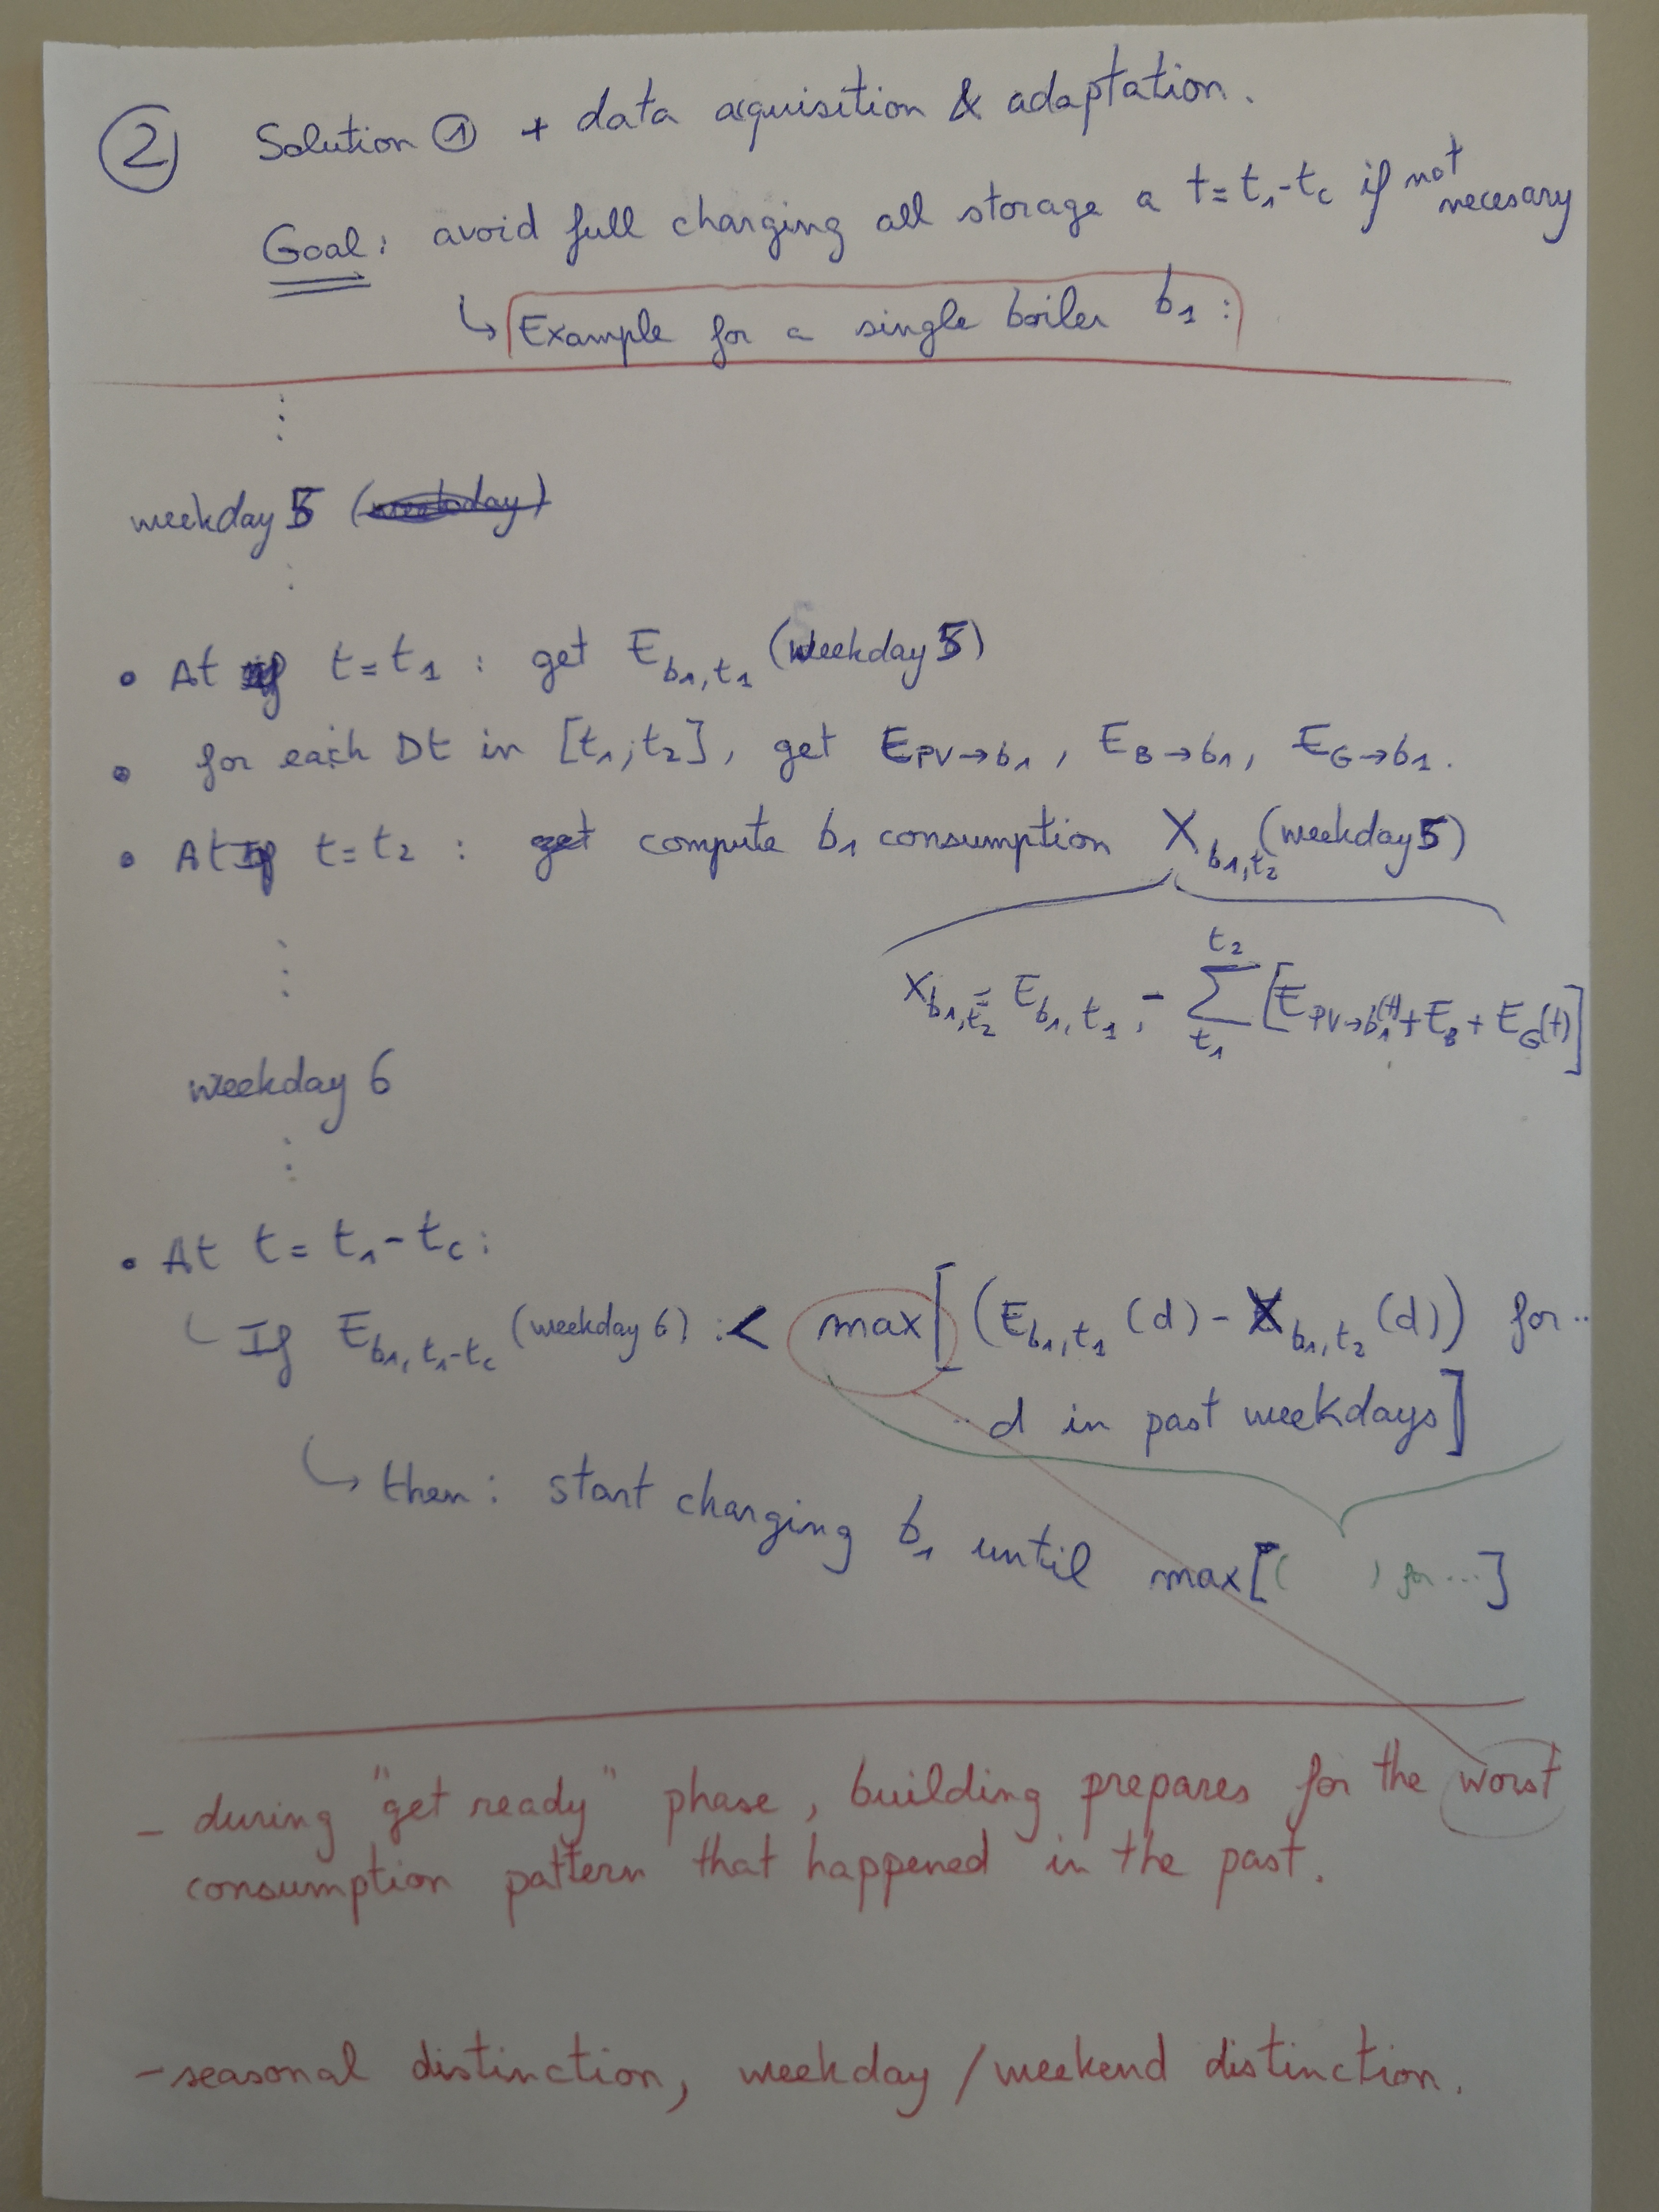 ② Solution ① + data acquisition & adaptation.
Goal: avoid full charging all storage a t=t₁-t_c if not necesary
↳ Example for a single boiler b₁ :
⋮
weekday 5
⋮
• At t=t₁ : get E_b₁,t₁ (weekday 5)
• for each Dt in [t₁;t₂], get E_PV→b₁, E_B→b₁, E_G→b₁.
• At t=t₂ : compute b₁ consumption X_b₁,t₂ (weekday 5)
X_b₁,t₂ = E_b₁,t₁ - Σ_t₁^t₂ [E_PV→b₁(t) + E_B + E_G(t)]
⋮
weekday 6
⋮
• At t=t₁-t_c :
If E_b₁,t₁-t_c (weekday 6) : < max[(E_b₁,t₁ (d) - X_b₁,t₂ (d)) for ..
.. d in past weekdays]
↳ then : start charging b₁ until max[( ) for ...]
- during "get ready" phase, building prepares for the worst
consumption pattern that happened in the past.
- seasonal distinction, weekday / weekend distinction.